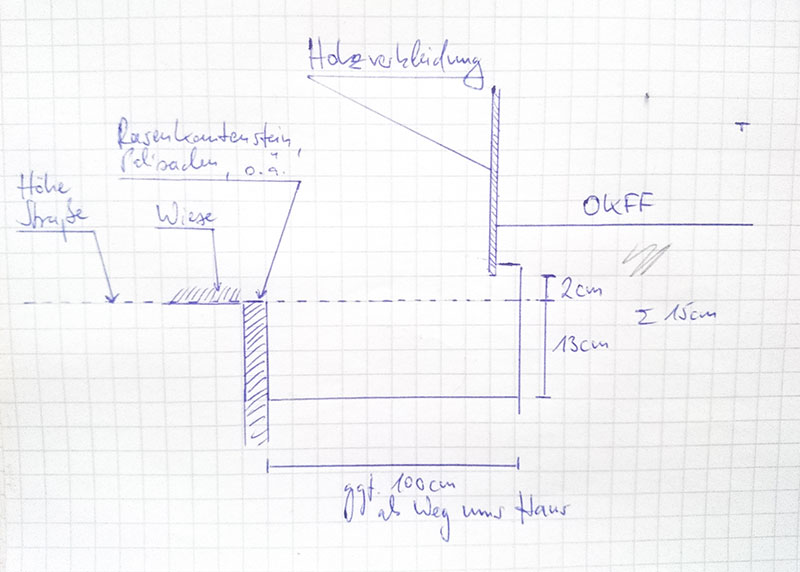 Holzverkleidung
Rasenkantenstein,
Palisaden, o.ä.
Höhe
Straße
Wiese
OKFF
2cm
Σ 15cm
13cm
ggf. 100cm
als Weg ums Haus